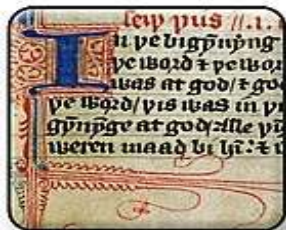 leiþ þus //.1.
In þe bigẏnẏng
þe word ⁊ þe wor
was at god/ ⁊ go
þe word/ þis was in þi
gẏnẏge at god/ Alle þi
weren maad bi hī: ⁊